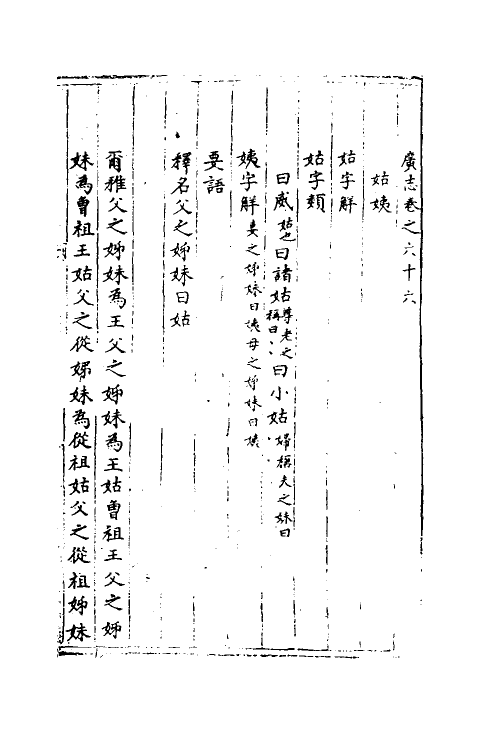 廣志卷之六十六
姑姨
姑字解
姑字類
曰威姑也曰諸姑尊老之稱曰〻曰小姑婦稱夫之妹曰〻〻
姨字解妻之姊妹曰姨母之姊妹曰姨
要語
釋名父之姊妹曰姑
爾雅父之姊妹為王父之姊妹為王姑曾祖王父之姊
妹為曾祖王姑父之從姊妹為從祖姑父之從祖姊妹